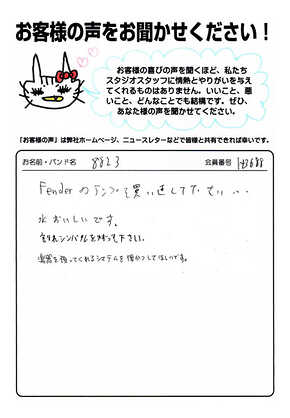 お客様の声をお聞かせください！
お客様の喜びの声を聞くほど、私たち
スタジオスタッフに情熱とやりがいを与え
てくれるものはありません。いいこと、悪
いこと、どんなことでも結構です。ぜひ、
あなた様の声をお聞かせください。
「お客様の声」は弊社ホームページ、ニュースレターなどで皆様と共有できれば幸いです。
お名前・バンド名 8823 会員番号
Fenderのアンプ買い直して下さい…
水おいしいです。
割れシンバルを替えて下さい。
楽器を預ってくれるシステムを復かつしてほしいです。